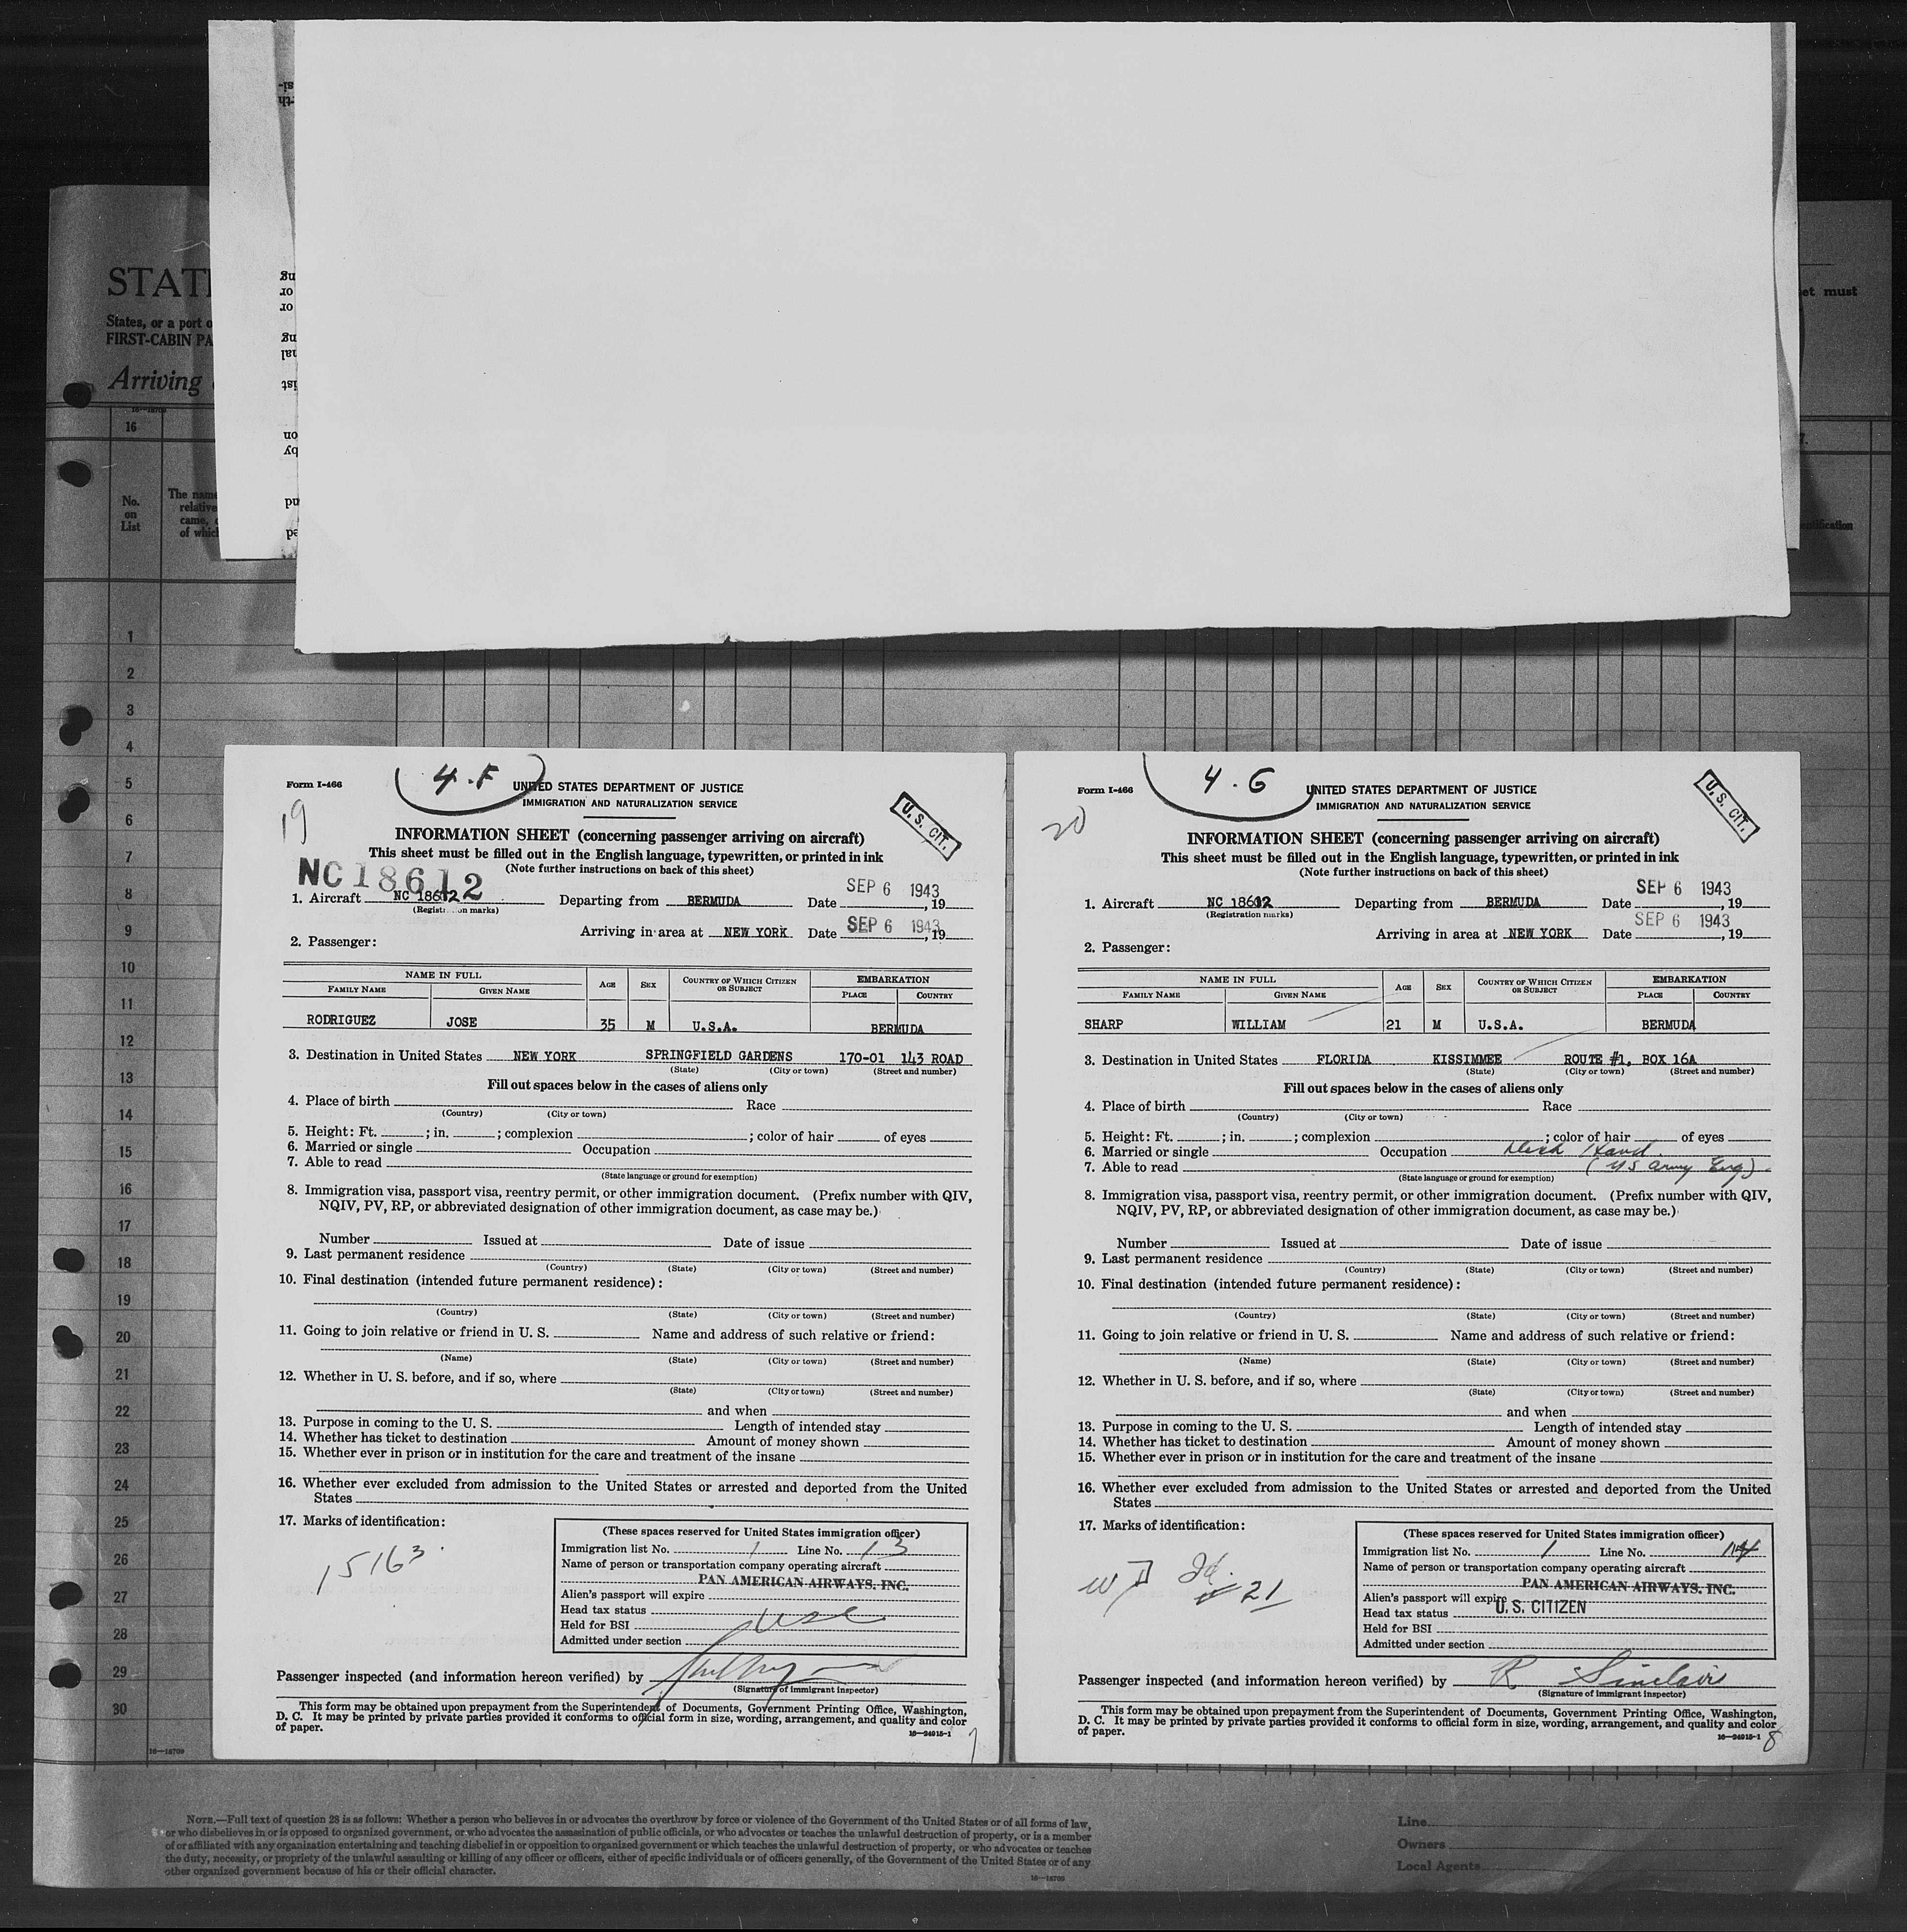 STAT
States, or a port o
FIRST-CABIN PA
Arriving
16
No.
on
List
The name
relative
came,
of which
et must
1
2
3
4
5
6
7
8
9
10
11
12
13
14
15
16
17
18
19
20
21
22
23
24
25
26
27
28
29
30
16—18709
Form I-466
4.F
UNITED STATES DEPARTMENT OF JUSTICE
IMMIGRATION AND NATURALIZATION SERVICE
19
U. S. CIT.
INFORMATION SHEET (concerning passenger arriving on aircraft)
This sheet must be filled out in the English language, typewritten, or printed in ink
(Note further instructions on back of this sheet)
NC18612
1. Aircraft NC 18612 Departing from BERMUDA Date SEP 6 1943, 19
(Registration marks)
Arriving in area at NEW YORK Date SEP 6 1943, 19
2. Passenger:
NAME IN FULL AGE SEX COUNTRY OF WHICH CITIZEN OR SUBJECT EMBARKATION
FAMILY NAME GIVEN NAME PLACE COUNTRY
RODRIGUEZ JOSE 35 M U.S.A. BERMUDA
3. Destination in United States NEW YORK SPRINGFIELD GARDENS 170-01 143 ROAD
(State) (City or town) (Street and number)
Fill out spaces below in the cases of aliens only
4. Place of birth Race
(Country) (City or town)
5. Height: Ft. ; in. ; complexion ; color of hair of eyes
6. Married or single Occupation
7. Able to read
(State language or ground for exemption)
8. Immigration visa, passport visa, reentry permit, or other immigration document. (Prefix number with QIV,
NQIV, PV, RP, or abbreviated designation of other immigration document, as case may be.)
Number Issued at Date of issue
9. Last permanent residence
(Country) (State) (City or town) (Street and number)
10. Final destination (intended future permanent residence):
(Country) (State) (City or town) (Street and number)
11. Going to join relative or friend in U. S. Name and address of such relative or friend:
(Name) (State) (City or town) (Street and number)
12. Whether in U. S. before, and if so, where
(State) (City or town) (Street and number)
and when
13. Purpose in coming to the U. S. Length of intended stay
14. Whether has ticket to destination Amount of money shown
15. Whether ever in prison or in institution for the care and treatment of the insane
16. Whether ever excluded from admission to the United States or arrested and deported from the United
States
17. Marks of identification:
15163
(These spaces reserved for United States immigration officer)
Immigration list No. 1 Line No. 13
Name of person or transportation company operating aircraft
PAN AMERICAN AIRWAYS, INC.
Alien's passport will expire
Head tax status USC
Held for BSI
Admitted under section
Passenger inspected (and information hereon verified) by
(Signature of immigrant inspector)
This form may be obtained upon prepayment from the Superintendent of Documents, Government Printing Office, Washington,
D. C. It may be printed by private parties provided it conforms to official form in size, wording, arrangement, and quality and color
of paper.
16—24915-1
7
Form I-466
4.G
UNITED STATES DEPARTMENT OF JUSTICE
IMMIGRATION AND NATURALIZATION SERVICE
20
U. S. CIT.
INFORMATION SHEET (concerning passenger arriving on aircraft)
This sheet must be filled out in the English language, typewritten, or printed in ink
(Note further instructions on back of this sheet)
1. Aircraft NC 18612 Departing from BERMUDA Date SEP 6 1943, 19
(Registration marks)
Arriving in area at NEW YORK Date SEP 6 1943, 19
2. Passenger:
NAME IN FULL AGE SEX COUNTRY OF WHICH CITIZEN OR SUBJECT EMBARKATION
FAMILY NAME GIVEN NAME PLACE COUNTRY
SHARP WILLIAM 21 M U.S.A. BERMUDA
3. Destination in United States FLORIDA KISSIMMEE ROUTE #1, BOX 16A
(State) (City or town) (Street and number)
Fill out spaces below in the cases of aliens only
4. Place of birth Race
(Country) (City or town)
5. Height: Ft. ; in. ; complexion ; color of hair of eyes
6. Married or single Occupation Deck Hand
7. Able to read (US Army Eng)
(State language or ground for exemption)
8. Immigration visa, passport visa, reentry permit, or other immigration document. (Prefix number with QIV,
NQIV, PV, RP, or abbreviated designation of other immigration document, as case may be.)
Number Issued at Date of issue
9. Last permanent residence
(Country) (State) (City or town) (Street and number)
10. Final destination (intended future permanent residence):
(Country) (State) (City or town) (Street and number)
11. Going to join relative or friend in U. S. Name and address of such relative or friend:
(Name) (State) (City or town) (Street and number)
12. Whether in U. S. before, and if so, where
(State) (City or town) (Street and number)
and when
13. Purpose in coming to the U. S. Length of intended stay
14. Whether has ticket to destination Amount of money shown
15. Whether ever in prison or in institution for the care and treatment of the insane
16. Whether ever excluded from admission to the United States or arrested and deported from the United
States
17. Marks of identification:
21
(These spaces reserved for United States immigration officer)
Immigration list No. 1 Line No. 14
Name of person or transportation company operating aircraft
PAN AMERICAN AIRWAYS, INC.
Alien's passport will expire
Head tax status U. S. CITIZEN
Held for BSI
Admitted under section
Passenger inspected (and information hereon verified) by R Sinclair
(Signature of immigrant inspector)
This form may be obtained upon prepayment from the Superintendent of Documents, Government Printing Office, Washington,
D. C. It may be printed by private parties provided it conforms to official form in size, wording, arrangement, and quality and color
of paper.
16—24915-1
8
NOTE.—Full text of question 28 is as follows: Whether a person who believes in or advocates the overthrow by force or violence of the Government of the United States or of all forms of law,
or who disbelieves in or is opposed to organized government, or who advocates the assassination of public officials, or who advocates or teaches the unlawful destruction of property, or is a member
of or affiliated with any organization entertaining and teaching disbelief in or opposition to organized government or which teaches the unlawful destruction of property, or who advocates or teaches
the duty, necessity, or propriety of the unlawful assaulting or killing of any officer or officers, either of specific individuals or of officers generally, of the Government of the United States or of any
other organized government because of his or their official character.
16—18709
Line
Owners
Local Agents